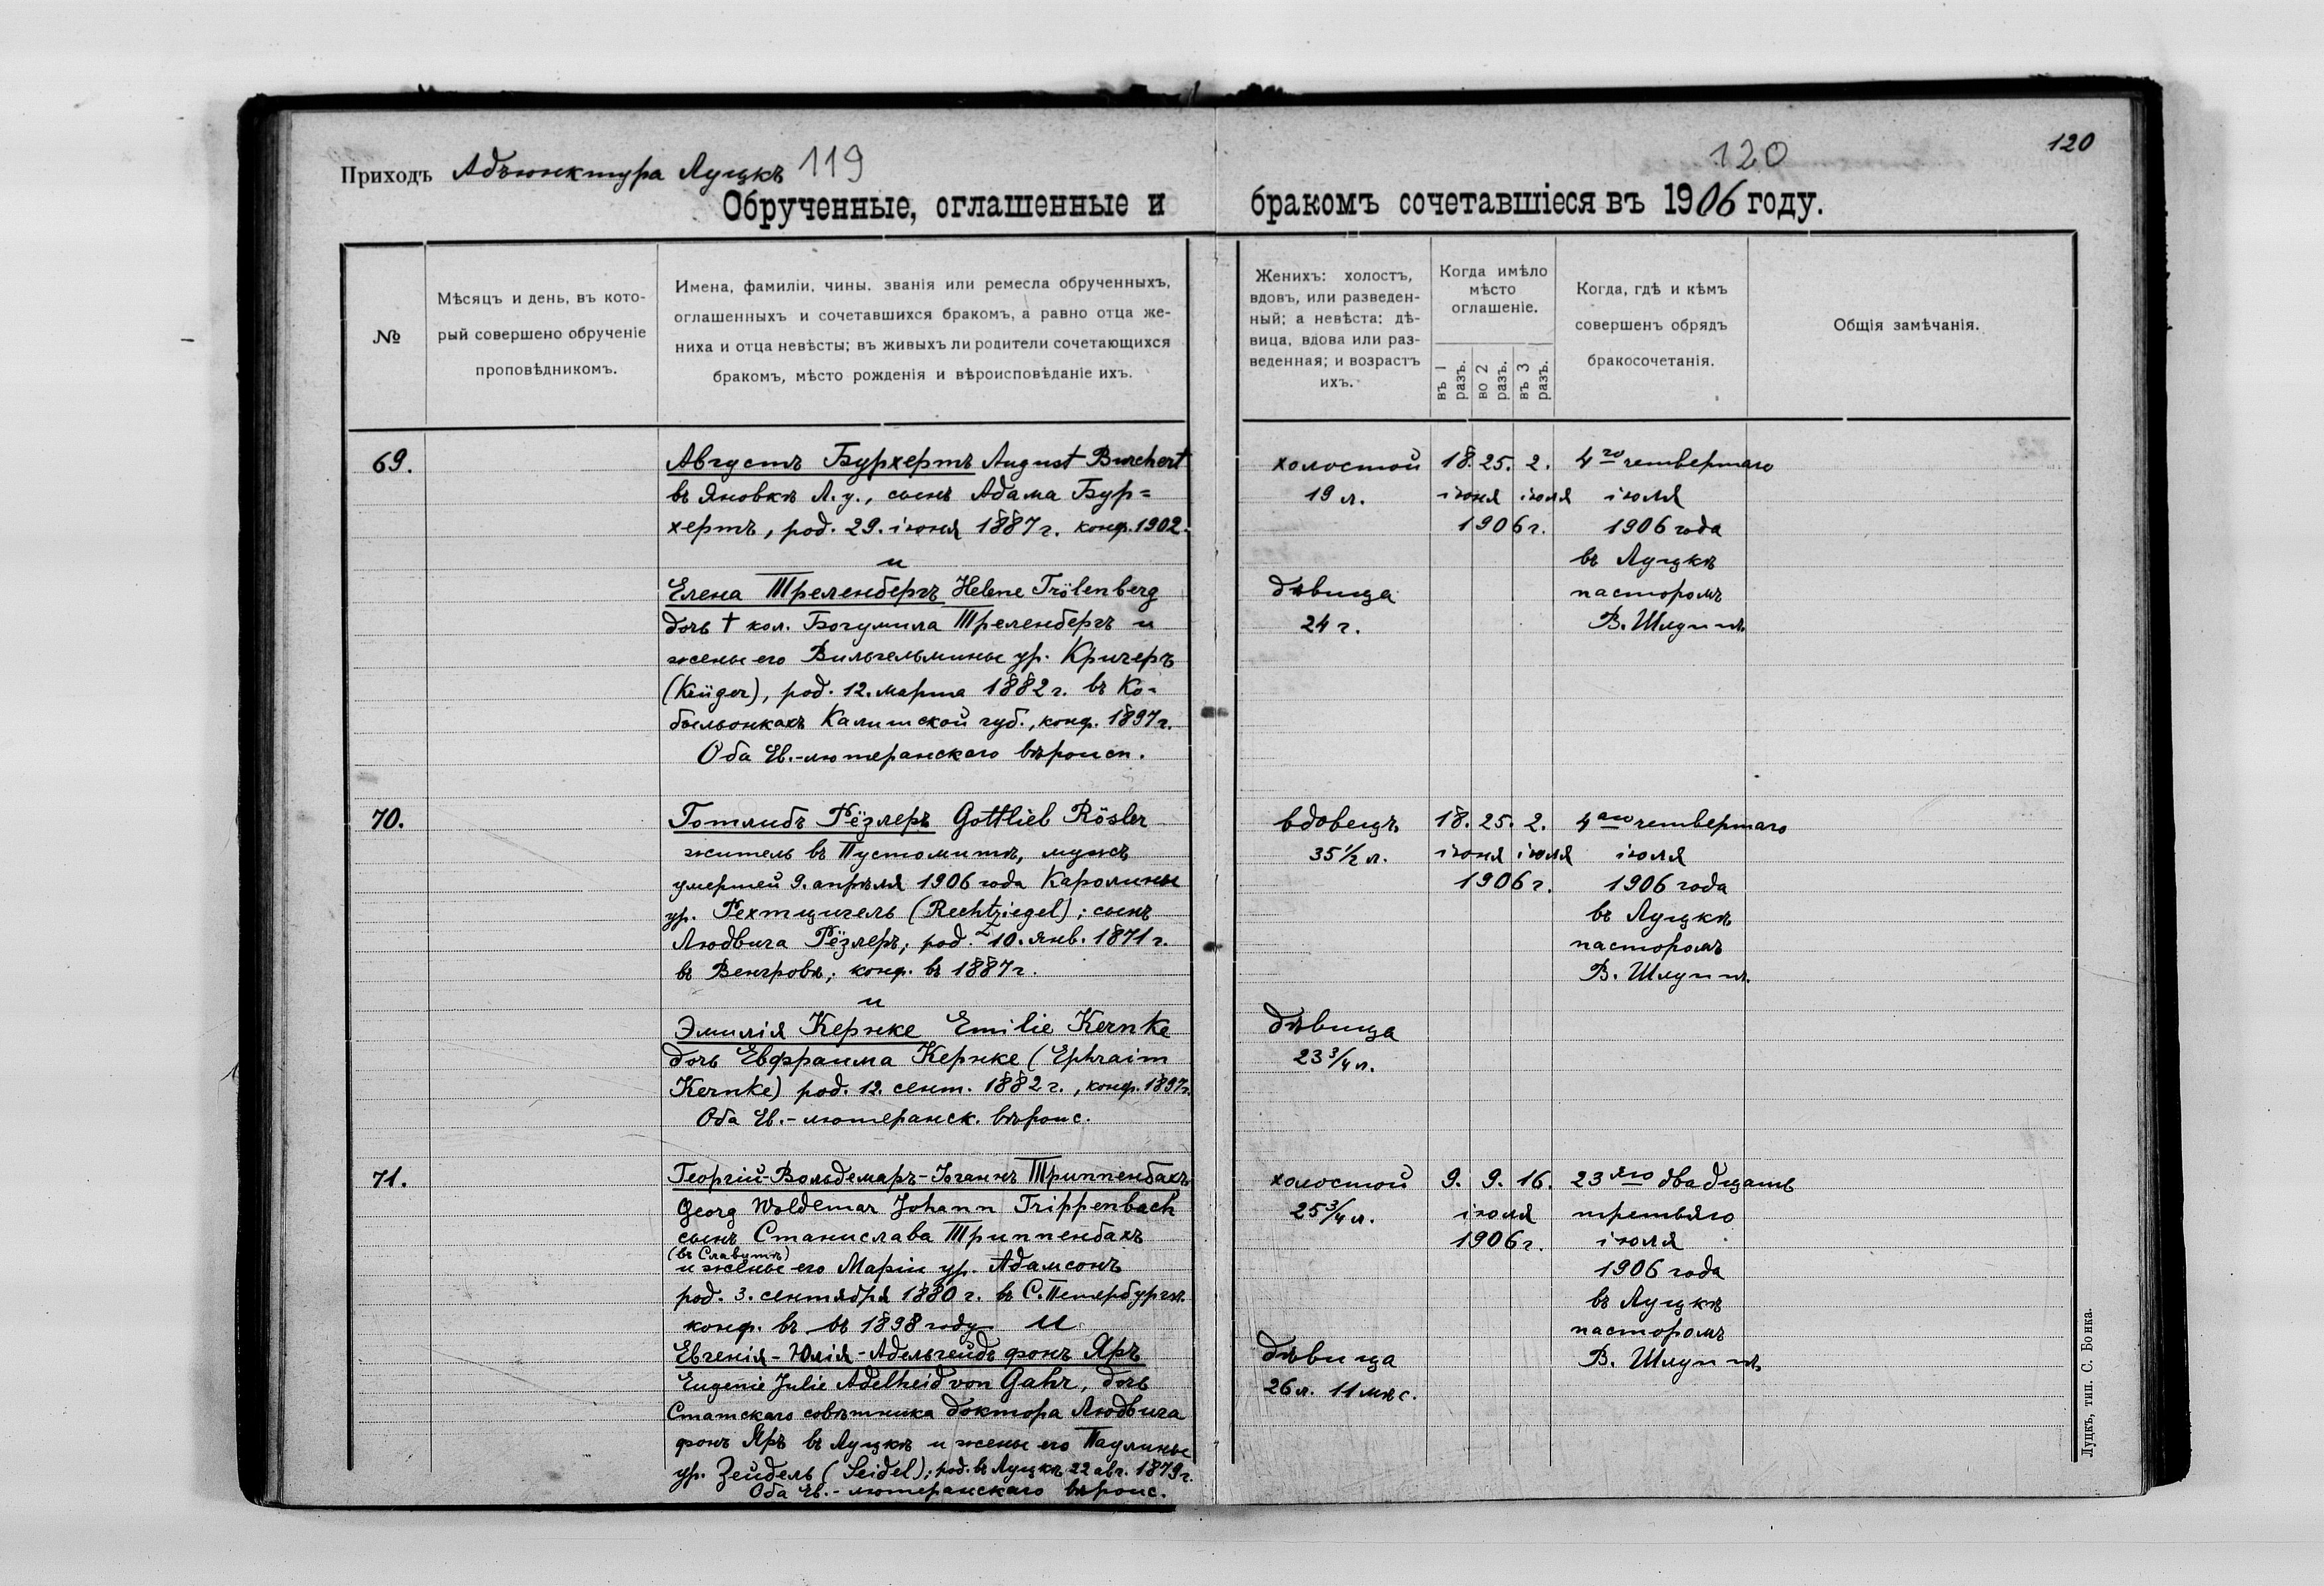 Приходъ Адъюнктура Луцкъ 119
Обрученные, оглашенные и
№
Мѣсяцъ и день, въ кото-
рый совершено обрученіе
проповѣдникомъ.
Имена, фамиліи, чины, званія или ремесла обрученныхъ,
оглашенныхъ и сочетавшихся бракомъ, а равно отца же-
ниха и отца невѣсты; въ живыхъ ли родители сочетающихся
бракомъ, мѣсто рожденія и вѣроисповѣданіе ихъ.
69.
Августъ Бурхертъ August Burchert
въ Яновкѣ Л. у., сынъ Адама Бур=
хертъ, род. 29. іюня 1887 г. конф. 1902.
и
Елена Треленбергъ Helene Trölenberg
дочь † кол. Богумила Треленбергъ и
жены его Вильгельмины ур. Кригеръ
(Krüger), род. 12. марта 1882 г. въ Ко-
быльонкахъ Калишской губ., конф. 1897 г.
Оба Ев.-лютеранскаго вѣроисп.
70.
Готлибъ Рёзлеръ Gottlieb Rösler
житель въ Пустомитѣ, мужъ
умершей 9. апрѣля 1906 года Каролины
ур. Рехтцигель (Rechtziegel); сынъ
Людвига Рёзлеръ; род. 10. янв. 1871 г.
въ Венгровѣ; конф. въ 1887 г.
и
Эмилія Кернке Emilie Kernke
дочь Евфраима Кернке (Ephraim
Kernke) род. 12. сент. 1882 г., конф. 1897 г.
Оба Ев.-лютеранск. вѣроис.
71.
Георгій-Вольдемаръ-Іоганнъ Триппенбахъ
Georg Woldemar Johann Trippenbach
сынъ Станислава Триппенбахъ
(въ Славутѣ)
и жены его Маріи ур. Адамсонъ
род. 3. сентября 1880 г. въ С.Петербургѣ.
конф. въ въ 1898 году и
Евгенія-Юлія-Адельгейдъ фонъ Яръ
Eugenie Julie Adelheid von Gahr, дочь
Статскаго совѣтника доктора Людвига
фонъ Яръ въ Луцкѣ и жены его Паулины
ур. Зейдель (Seidel); род. въ Луцкѣ 22 авг. 1879 г.
Оба Ев.-лютеранскаго вѣроис.
120
120
бракомъ сочетавшіеся въ 1906 году.
Женихъ: холостъ,
вдовъ, или разведен-
ный; а невѣста: дѣ-
вица, вдова или раз-
веденная; и возрастъ
ихъ.
Когда имѣло
мѣсто
оглашеніе.
въ 1 разъ.
во 2 разъ.
въ 3 разъ.
Когда, гдѣ и кѣмъ
совершенъ обрядъ
бракосочетанія.
Общія замѣчанія.
холостой 18. 25. 2. 4го четвертаго
19 л. іюня іюля іюля
1906 г. 1906 года
въ Луцкѣ
дѣвица пасторомъ
24 г. В. Шлуппъ
вдовецъ 18. 25. 2. 4аго четвертаго
35 ½ л. іюня іюля іюля
1906 г. 1906 года
въ Луцкѣ
пасторомъ
В. Шлуппъ.
дѣвица
23 ¾ л.
холостой 9. 9. 16. 23яго двадцать
25 ¾ л. іюля третьяго
1906 г. іюля
1906 года
въ Луцкѣ
пасторомъ
дѣвица В. Шлуппъ
26 л. 11 мѣс.
Луцкъ, тип. С. Бонка.